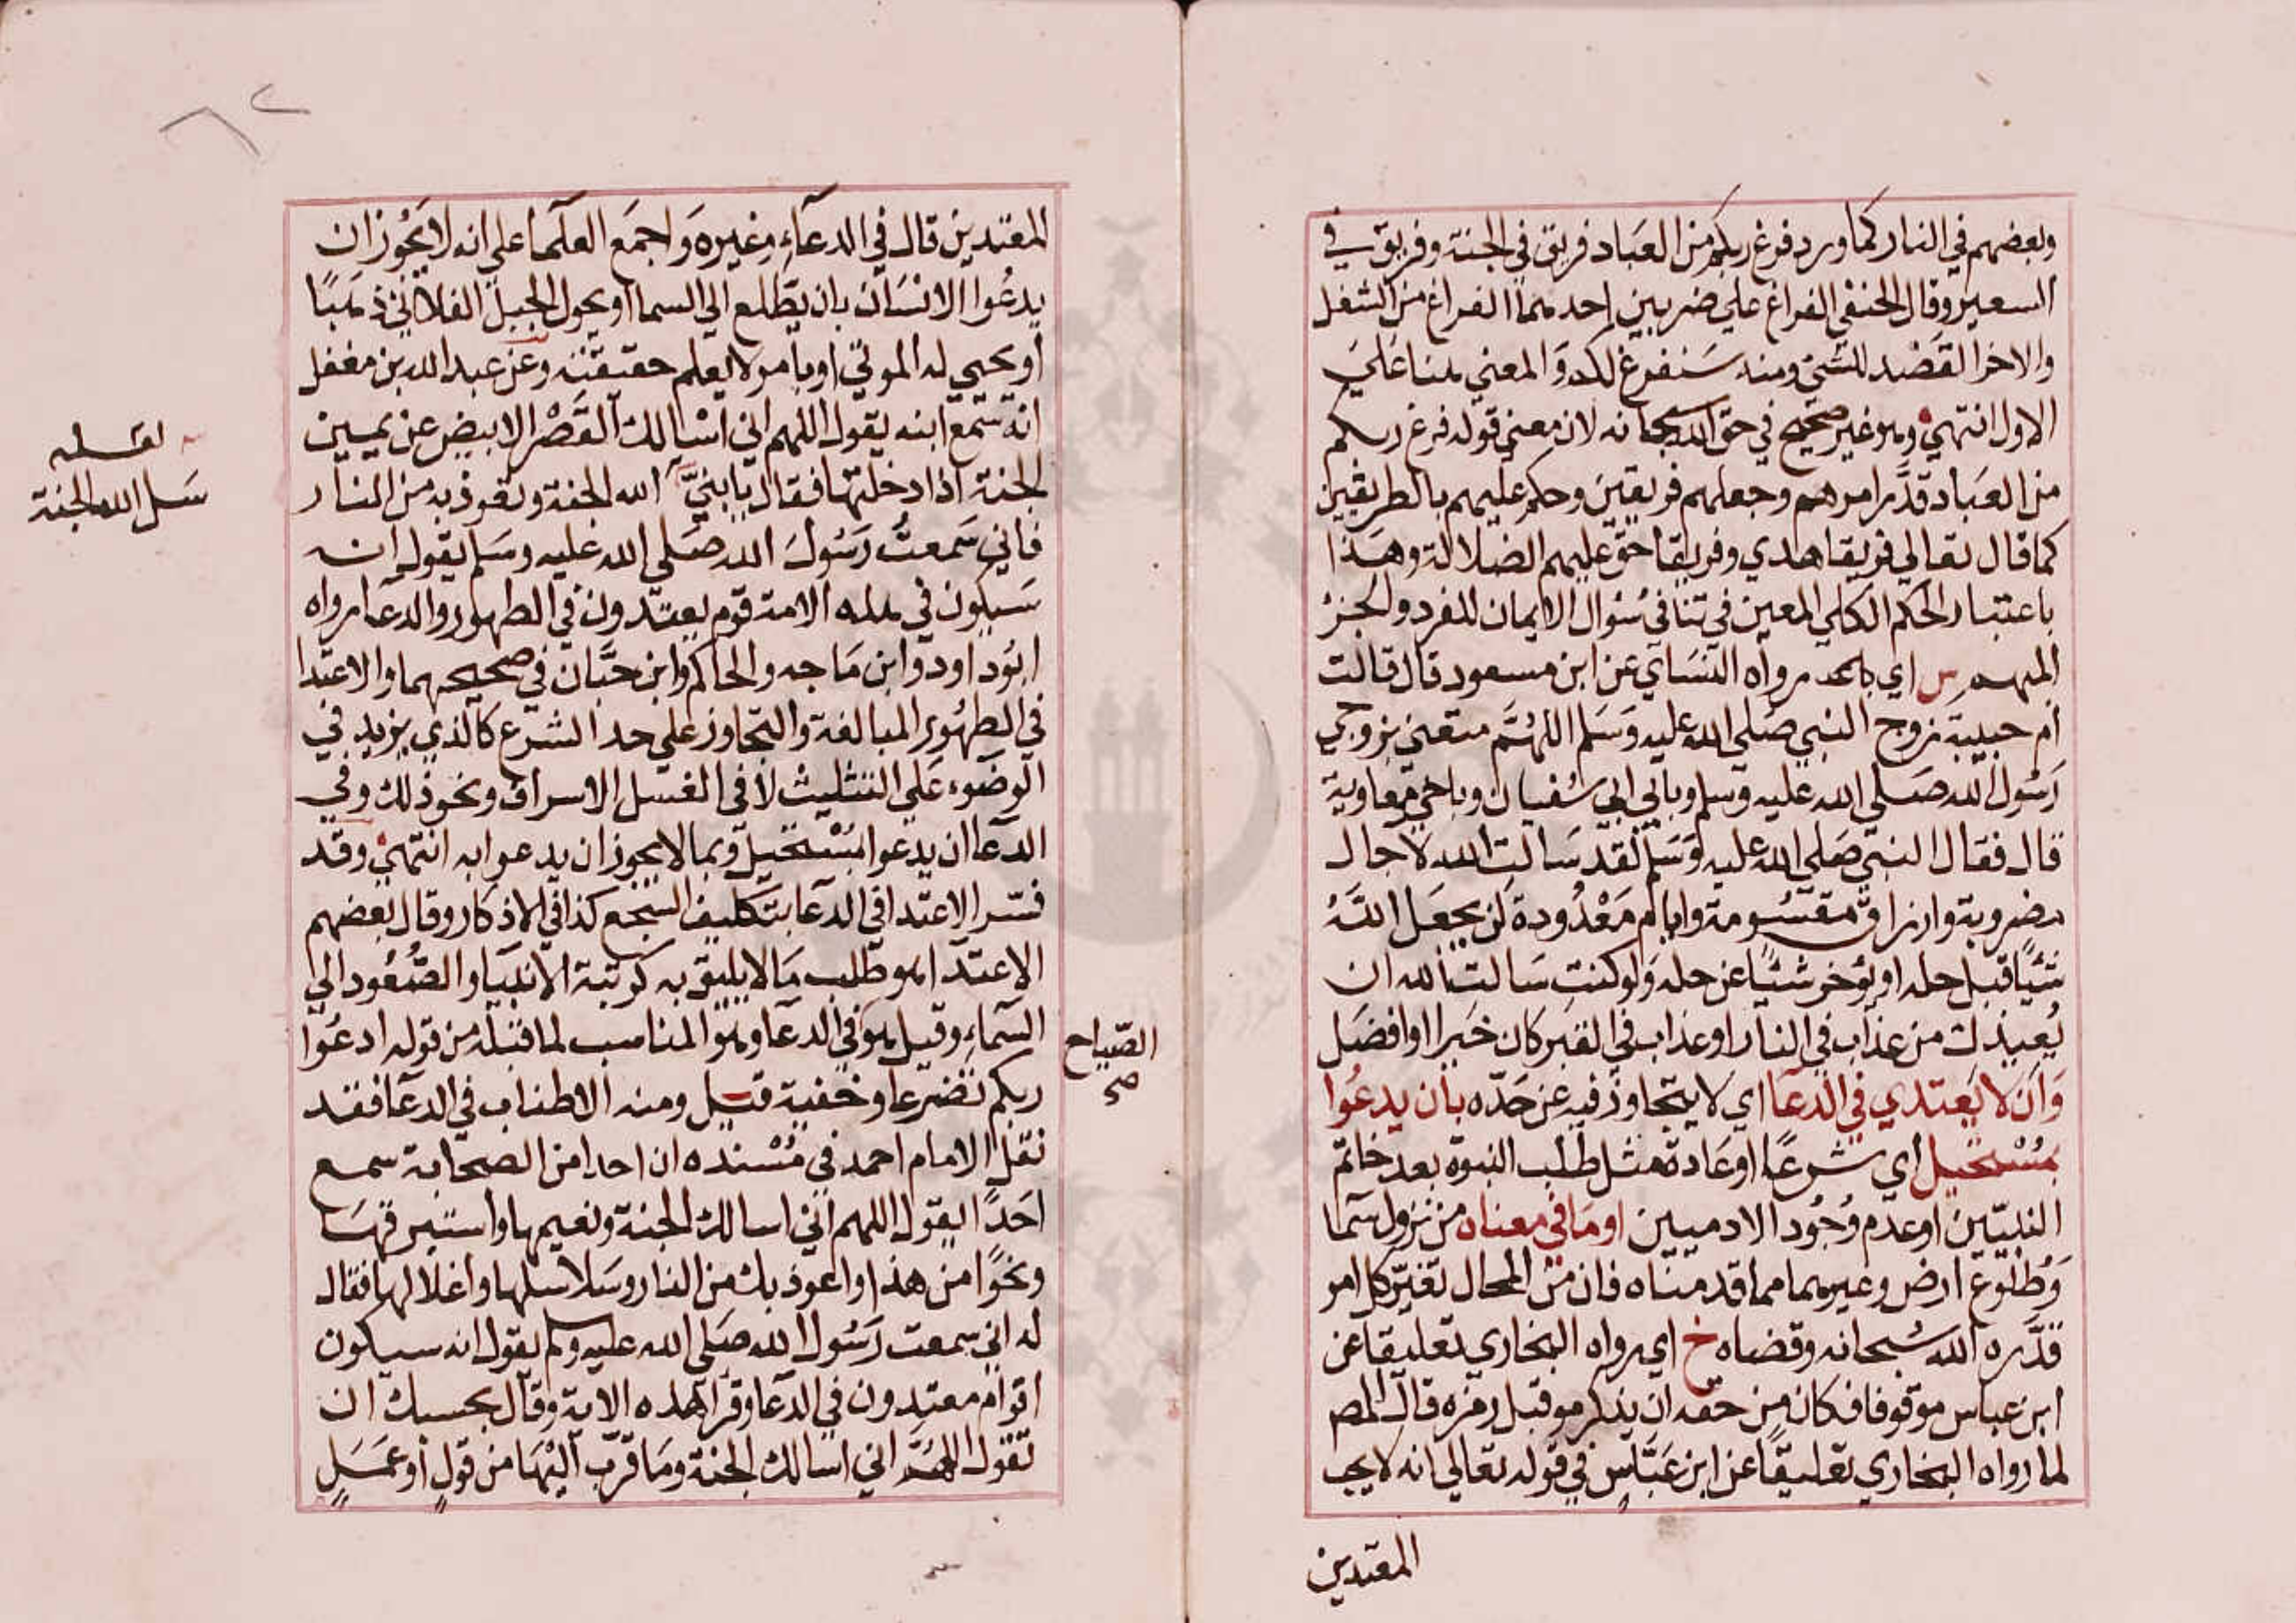 وبعضهم في النار كما ورد فرغ ربكم من العباد فريق في الجنة وفريق في
السعير وقال الحنفي الفراغ علي ضربين احدهما الفراغ من الشغل
والاخر القصد للشئ ومنه سنفرغ لكم والمعني هنا علي
الاول انتهي وهو غير صحيح في حق الله سبحانه لان معني قوله فرغ ربكم
من العباد قدر امرهم وجعلهم فريقين وحكم عليهم بالطريقين
كما قال تعالي فريقا هدي وفريقا حق عليهم الضلالة وهذا
باعتبار الحكم الكلي المعين في تنافي سؤال الايمان للفرد والجزئ
المبهم س اي رواه النساي عن ابن مسعود قال قالت
ام حبيبة زوج النبي صلي الله عليه وسلم اللهم متعني بزوجي
رسول الله صلي الله عليه وسلم وبابي ابي سفيان وباخي معاوية
قال فقال النبي صلي الله عليه وسلم لقد سالت الله لاجال
مضروبة وارزاق مقسومة وايام معدودة لن يجعل الله
شيئا قبل حله او يؤخر شيئا عن حله ولو كنت سالت الله ان
يعيذك من عذاب في النار او عذاب في القبر كان خيرا او افضل
وان لا يعتدي في الدعا اي لا يتجاوز فيه عن حده بان يدعوا
بمستحيل اي شرعا او عادة مثل طلب النبوة بعد خاتم
النبيين او عدم وجود الادميين او ما في معناه من نزول سما
وطلوع ارض وغيرهما مما قدمناه فان من المحال تغير كل امر
قدره الله سبحانه وقضاه خ اي رواه البخاري تعليقا عن
ابن عباس موقوفا فكان من حقه ان يذكر مو قبل رمزه قال المص
لما رواه البخاري تعليقا عن ابن عباس في قوله تعالي انه لا يحب
المعتدين
المعتدين قال في الدعاء وغيره واجمع العلما علي انه لا يجوز ان
يدعوا الانسان بان يطلع الي السما او يحول الجبل الفلاني ذهبا
او يحيي له الموتي او بامر لا يعلم حقيقته وعن عبد الله بن مغفل
انه سمع ابنه يقول اللهم اني اسالك القصر الابيض عن يمين
الجنة اذا دخلتها فقال يا بني الله الجنة وتعوذ به من النار
فاني سمعت رسول الله صلي الله عليه وسلم يقول انه
سيكون في هذه الامة قوم يعتدون في الطهور والدعا رواه
ابو داود وابن ماجه والحاكم وابن حبان في صحيحهما والاعتدا
في الطهور المبالغة والتجاوز علي حد الشرع كالذي يزيد في
الوضوء علي التثليث لا في الغسل الاسراف ونحو ذلك وفي
الدعا ان يدعوا بمستحيل وبما لا يجوز ان يدعوا به انتهي وقد
فسر الاعتدا في الدعا بتكليف السجع كذا في الاذكار وقال بعضهم
الاعتدا هو طلب ما لا يليق به كرتبة الانبيا والصعود الي
السماء وقيل هو في الدعا وهو المناسب لما قبله من قوله ادعوا
ربكم تضرعا وخفية قيل ومنه الاطناب في الدعا فقد
نقل الامام احمد في مسنده ان احدا من الصحابة سمع
احدا يقول اللهم اني اسالك الجنة ونعيمها واستبرقها
ونحوا من هذا واعوذ بك من النار وسلاسلها واغلالها فقال
له اني سمعت رسول الله صلي الله عليه وسلم يقول انه سيكون
اقوام معتدون في الدعا وقرا هذه الاية وقال بحسبك ان
تقول اللهم اني اسالك الجنة وما قرب اليها من قول او عمل
الصياح
صح
لعله
سل الله الجنة